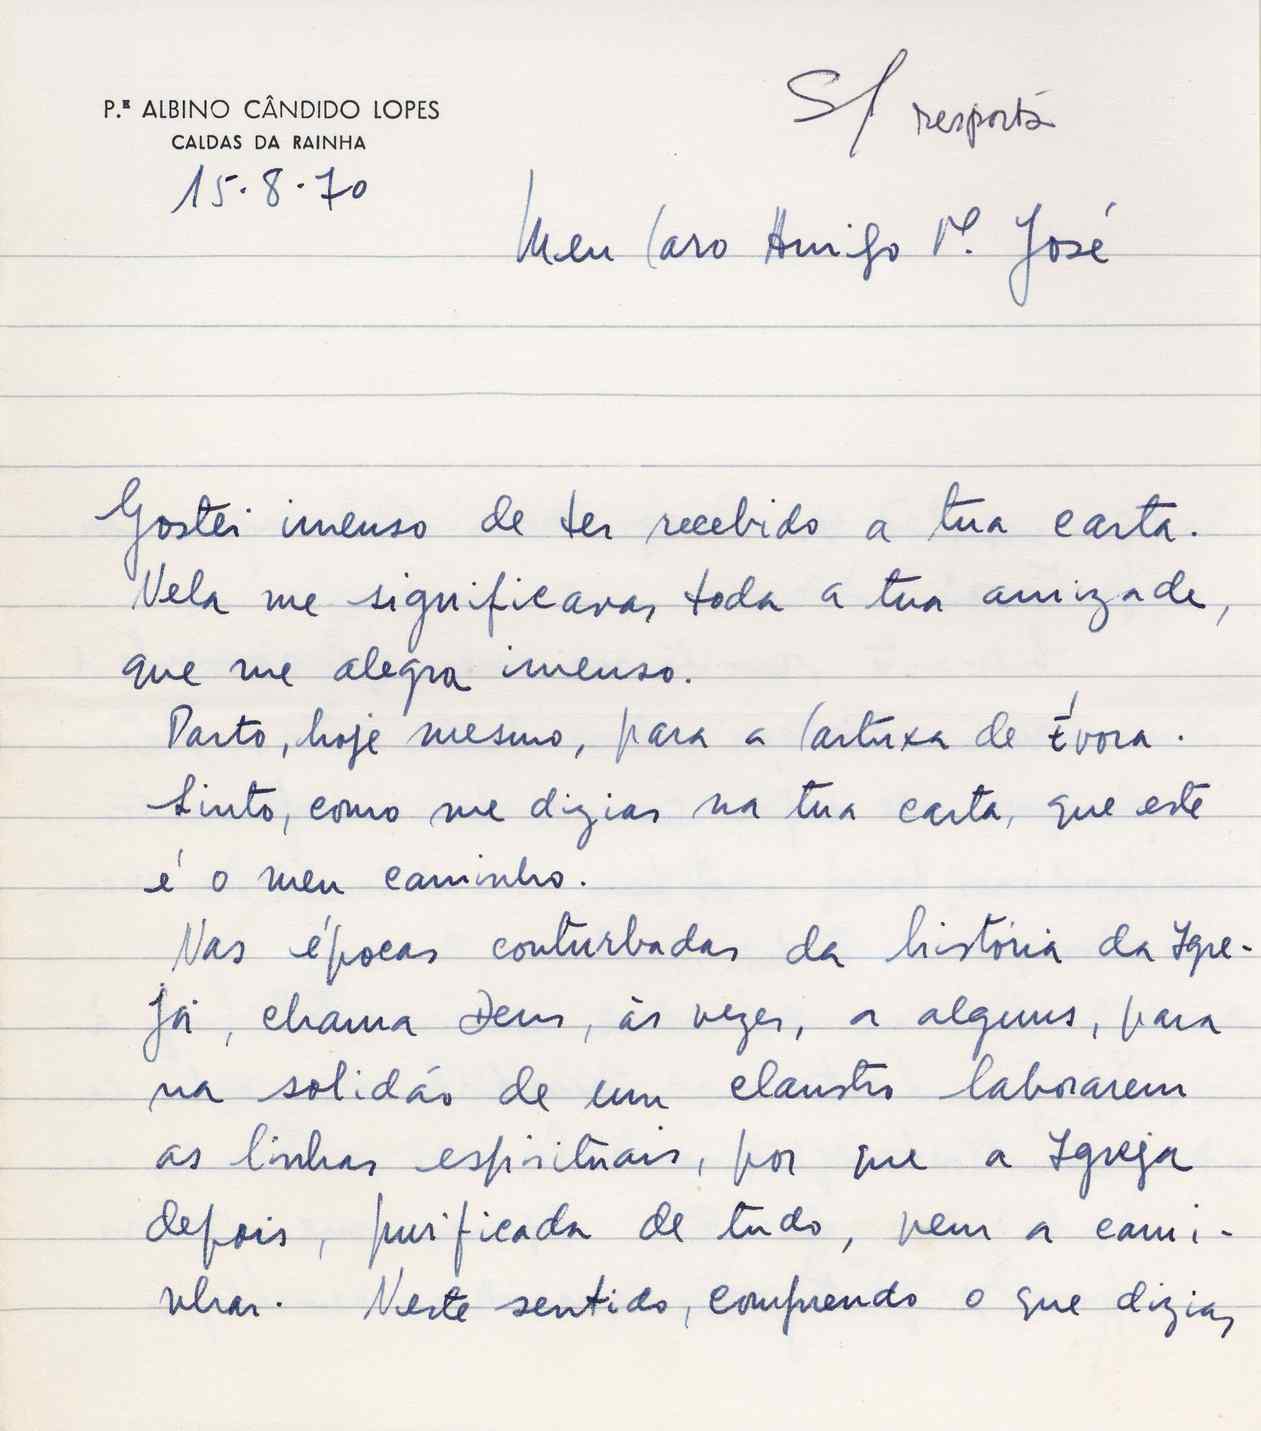 P.E ALBINO CÂNDIDO LOPES
CALDAS DA RAINHA
15·8·70
S/ resposta
Meu Caro Amigo P. José
Gostei imenso de ter recebido a tua carta.
Nela me significavas toda a tua amizade,
que me alegra imenso.
Parto, hoje mesmo, para a Cartuxa de Évora.
Sinto, como me dizias na tua carta, que este
é o meu caminho.
Nas épocas conturbadas da história da Igre-
ja, chama Deus, às vezes, a alguns, para
na solidão de um claustro laborarem
as linhas espirituais, por que a Igreja
depois, purificada de tudo, vem a cami-
nhar. Neste sentido, comprendo o que dizias